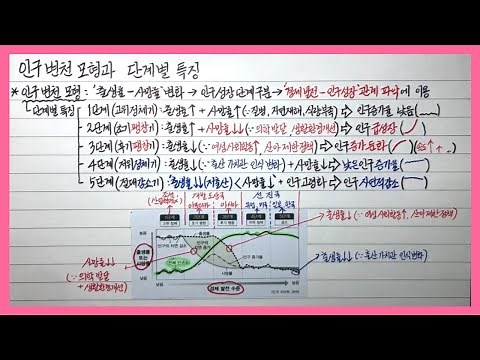 인구 변천 모형과 단계별 특징
* 인구 변천 모형 : '출생률 - 사망률' 변화 → 인구 성장 단계 구분 → '경제 발전 - 인구 성장' 관계 파악에 이용
단계별 특징
1단계(고위 정체기) : 출생률↑ + 사망률↑ (∵ 질병, 자연재해, 식량 부족) ⇒ 인구 증가율 낮음
2단계(초기 팽창기) : 출생률↑ + 사망률↓↓ (∵ 의학 발달, 생활환경 개선) ⇒ 인구 급성장
3단계(후기 팽창기) : 출생률↓ (∵ 여성 사회 활동↑, 산아 제한 정책) ⇒ 인구 증가 둔화
4단계(저위 정체기) : 출생률↓↓ (∵ 출산 가치관 인식 변화) + 사망률↓↓ ⇒ 낮은 인구 증가율
5단계(절대 감소기) : 출생률↓↓ (저출산) < 사망률↓ + 인구 고령화 ⇒ 인구 자연적 감소
개발 도상국 선진국
높음
출생률
출생률 또는 사망률
인구의 자연 증가
사망률
낮음
낮음 경제 발전 수준 높음
사망률↓↓
(∵ 의학 발달
+ 생활환경 개선)
출생률↓ (∵ 여성 사회 활동↑, 산아 제한 정책)
출생률↓↓ (∵ 출산 가치관 인식 변화)